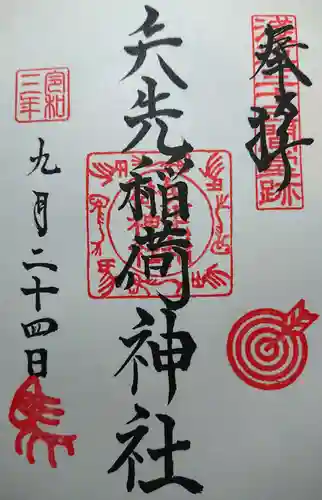 奉拝
矢先稲荷神社
令和三年
九月二十四日